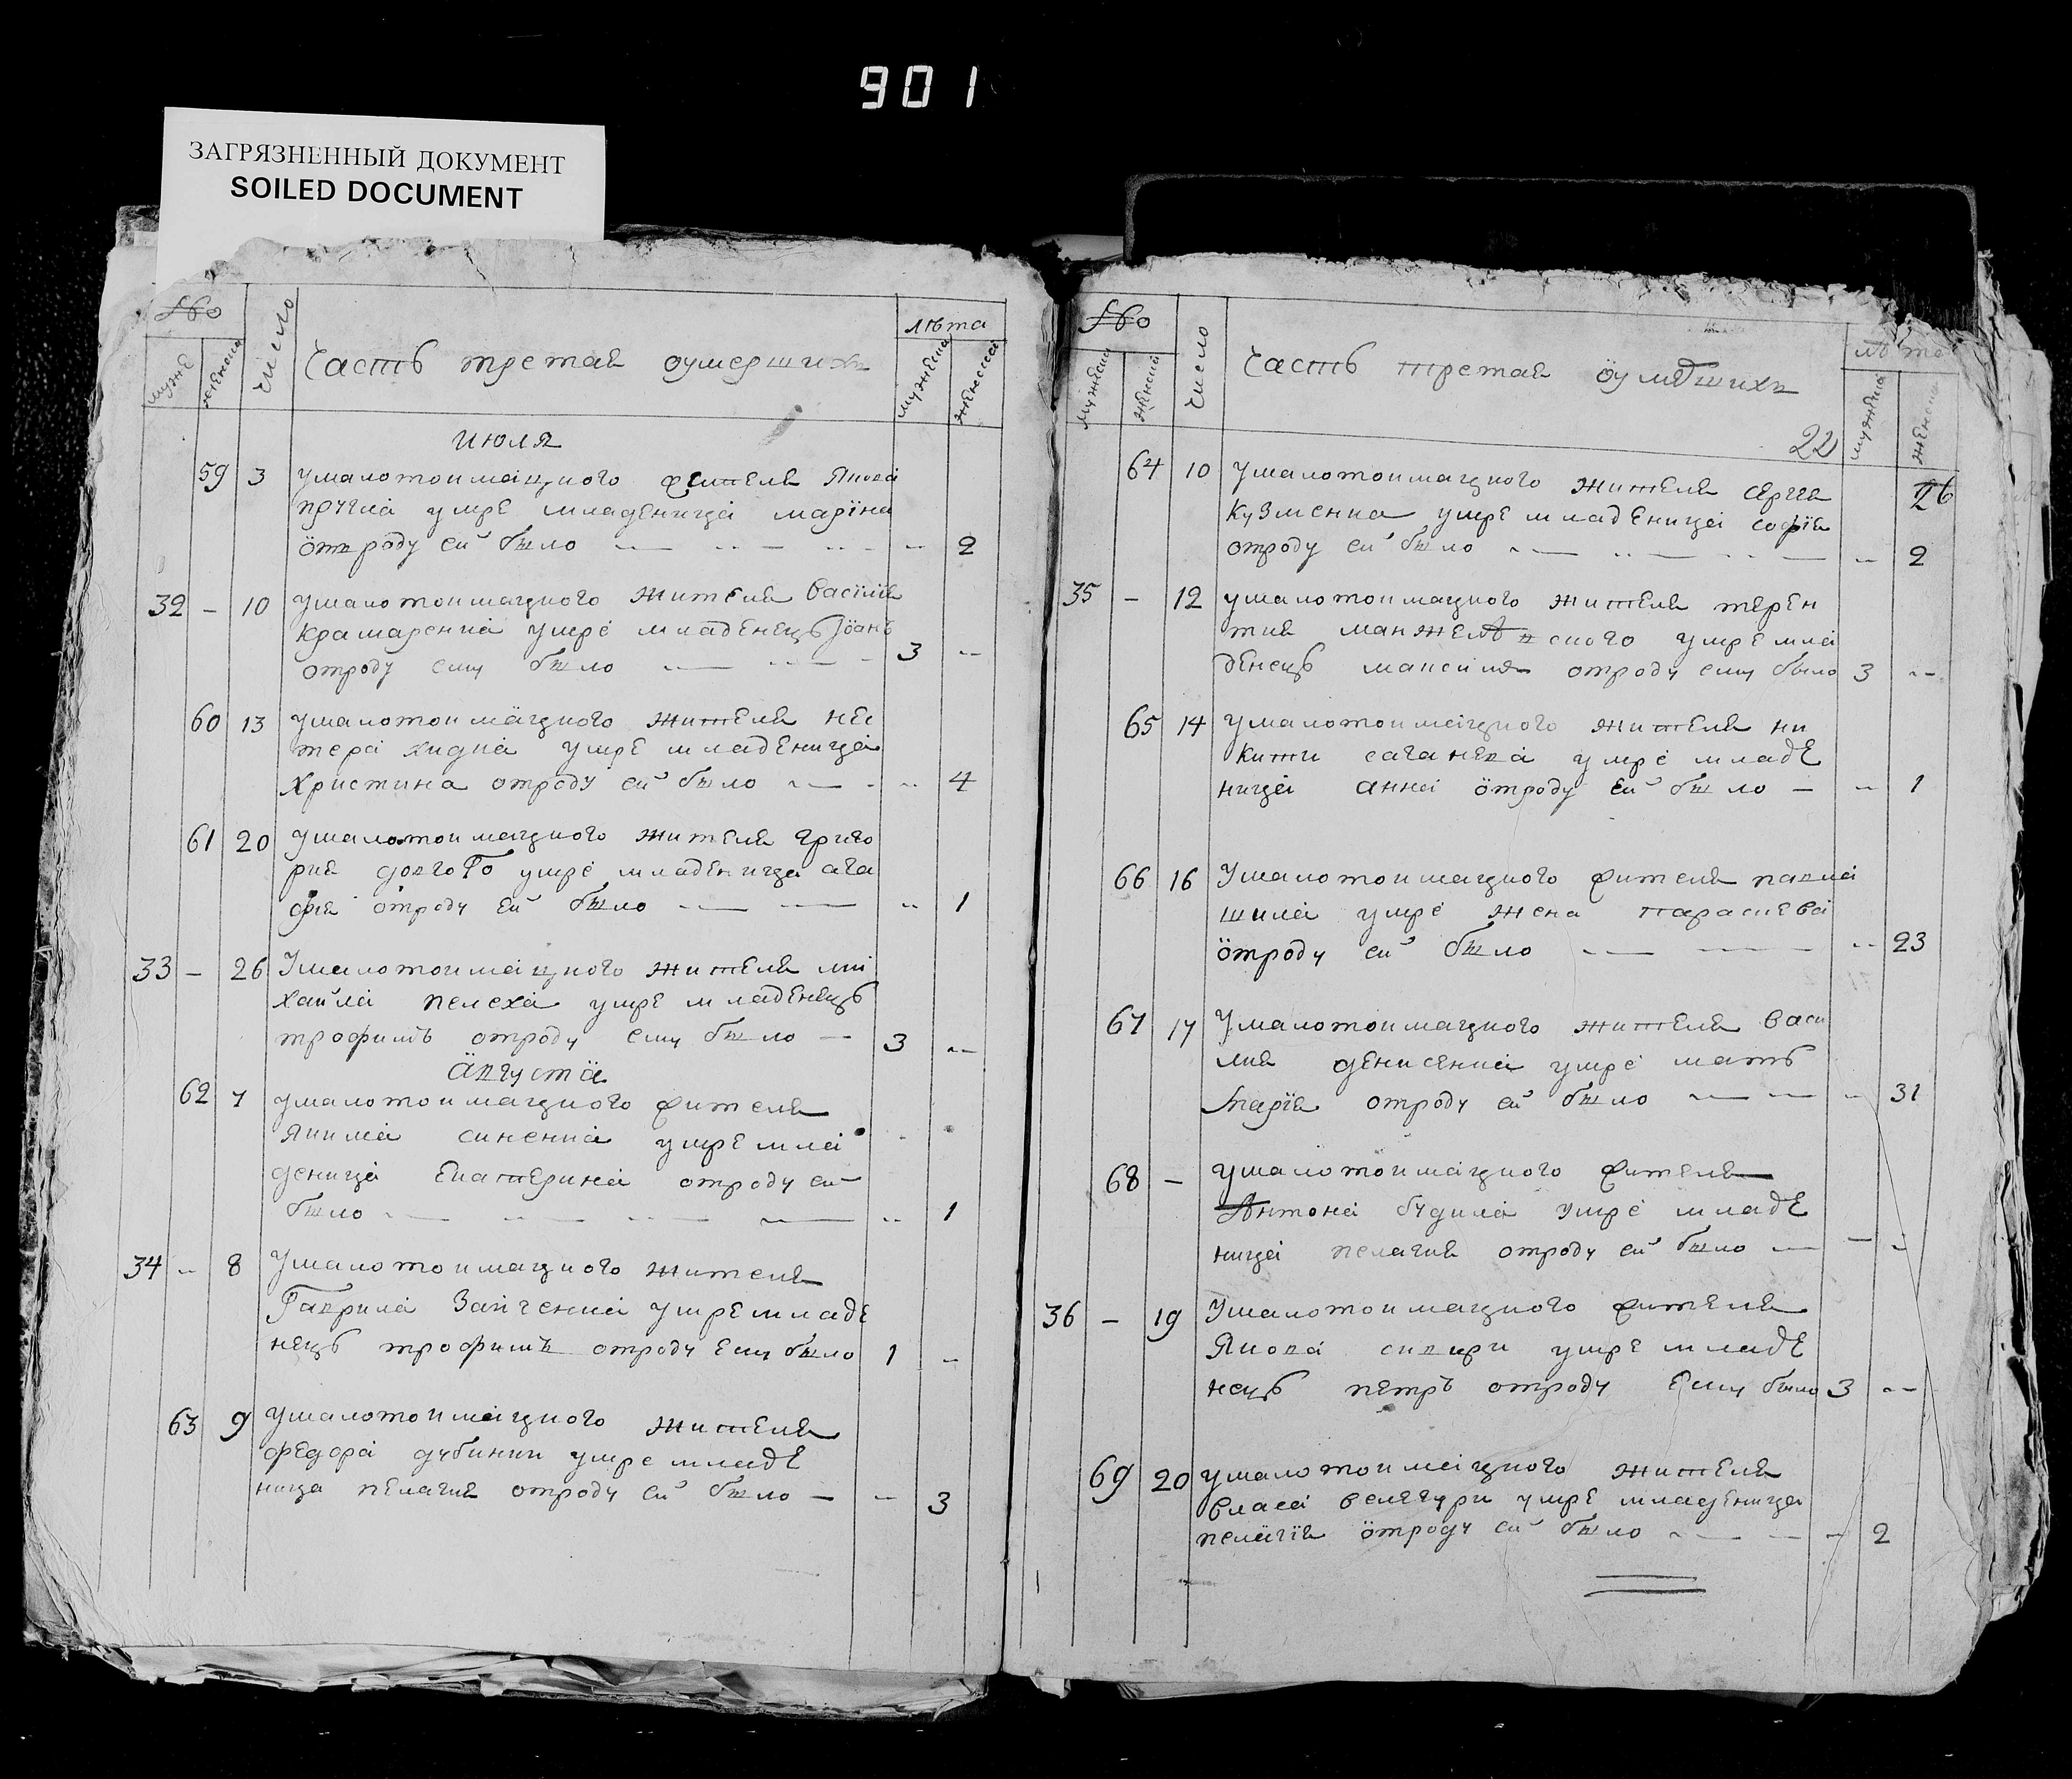 901
ЗАГРЯЗНЕННЫЙ ДОКУМЕНТ
SOILED DOCUMENT
№
число
Часть третая оумерших
лѣта
мужеска
женеска
июля
59 3 умалотокмацкого жителя Якова
умре младеница марїна
отъ роду ей было 2
32 - 10 умалотокмацкого жителя Василїя
крамаренка умре младенецъ Іоанъ
отроду ему было 3
60 13 умалотокмацкого жителя нес
тера хидка умре младеница
христина отроду ей было 4
61 20 умалотокмацкого жителя григо
рия долгого умре младеница ага
фїя отроду ей было 1
33 - 26 Умалотокмацкого жителя ми
хаила пелеха умре младенецъ
трофимъ отроду ему было 3
Августа
62 7 умалотокмацкого жителя
Якима синенка умре мла
деница Екатерина отроду ей
было 1
34 8 Умалотокмацкого жителя
Гаврила Зайченка умре младе
нецъ трофимъ отроду Ему было 1
63 9 умалотокмацкого жителя
федора дубинки умре младе
ница пелагия отроду ей было 3
№
мужеска
женеска
число
Часть третая
лѣта
22
26
64 10 умалотокмацкого жителя сергея
кузменка умре младеница софїя
отроду ей было 2
35 - 12 умалотокмацкого жителя терен
тия умре мла
денецъ максимъ отроду ему было 3
65 14 умалотокмацкого жителя ни
кити саганека умре младе
ница анна отроду ей было 1
66 16 Умалотокмацкого жителя павла
шила умре жена параскева
отроду ей было 23
67 17 Умалотокмацкого жителя васи
лия денисенка умре мать
Марїя отроду ей было 31
68 - умалотокмацкого жителя
Антона будила умре младе
ница пелагия отроду ей было
36 - 19 Умалотокмацкого жителя
Якова умре младе
нецъ петръ отроду Ему было 3
69 20 умалотокмацкого жителя
власа велегури умре младеница
пелагїя отроду ей было 2